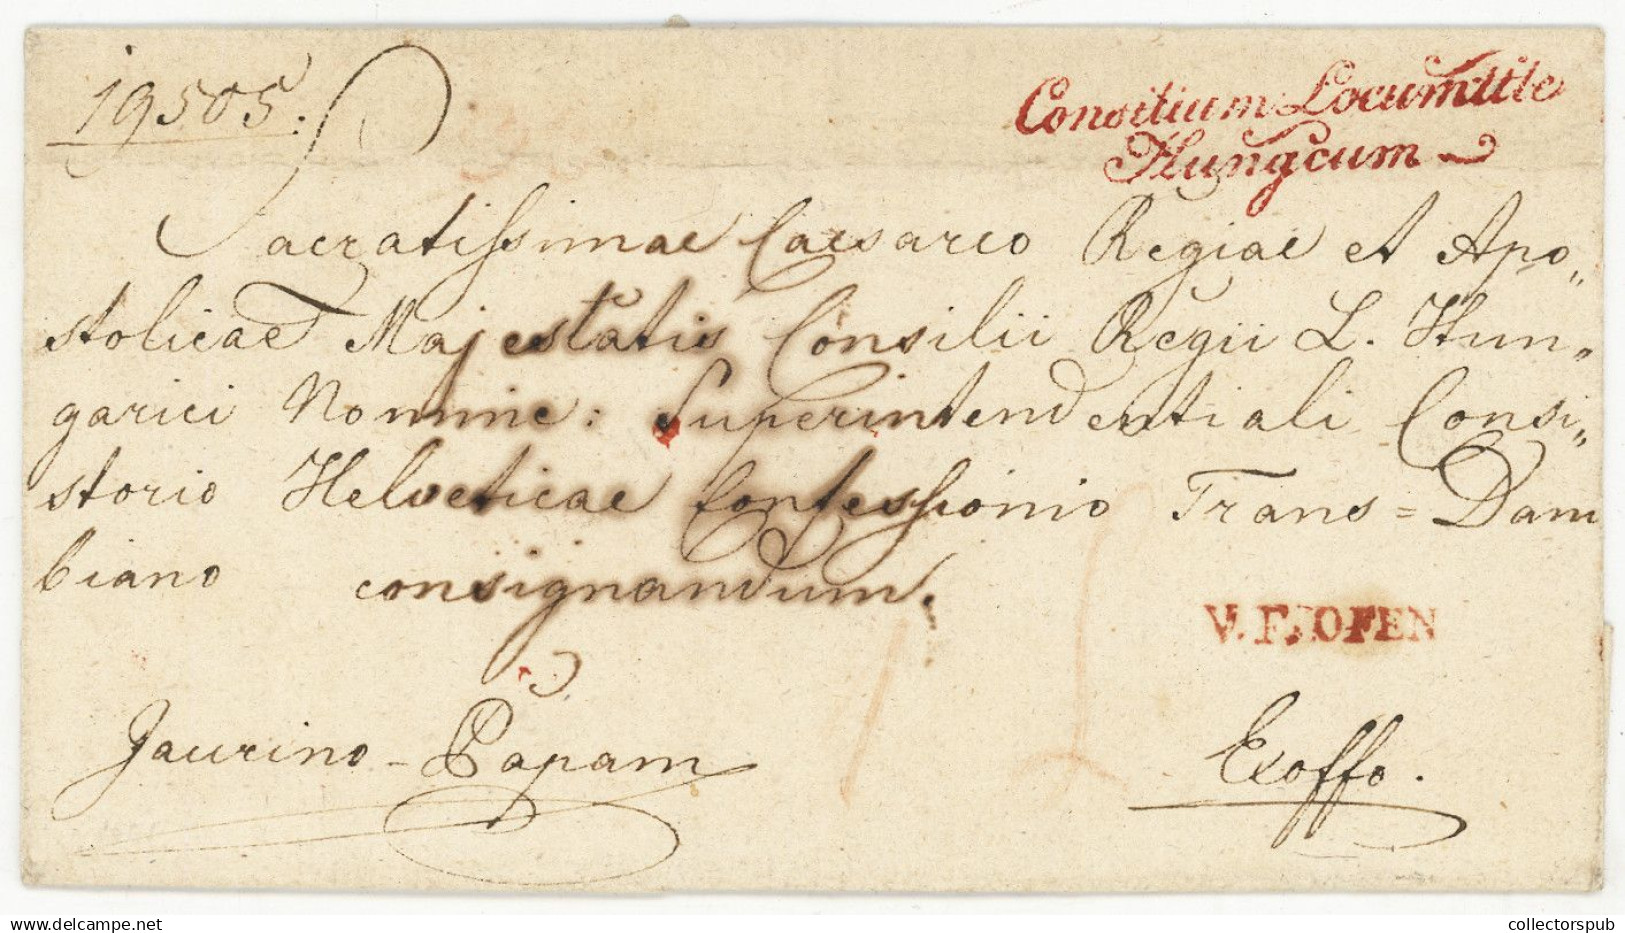 19505.
Consilium Locumttle
Hungcum
Sacratissimae Caesareo Regiae et Apo„
stolicae Majestatis Consilii Regii L. Hun„
garici Nomine: Superintendentiali Consi„
storio Helveticae Confessionis Trans=Danu
biano consignandum.
V. F. OFEN
Jaurino - Pápam
Exoffo.
collectorspub